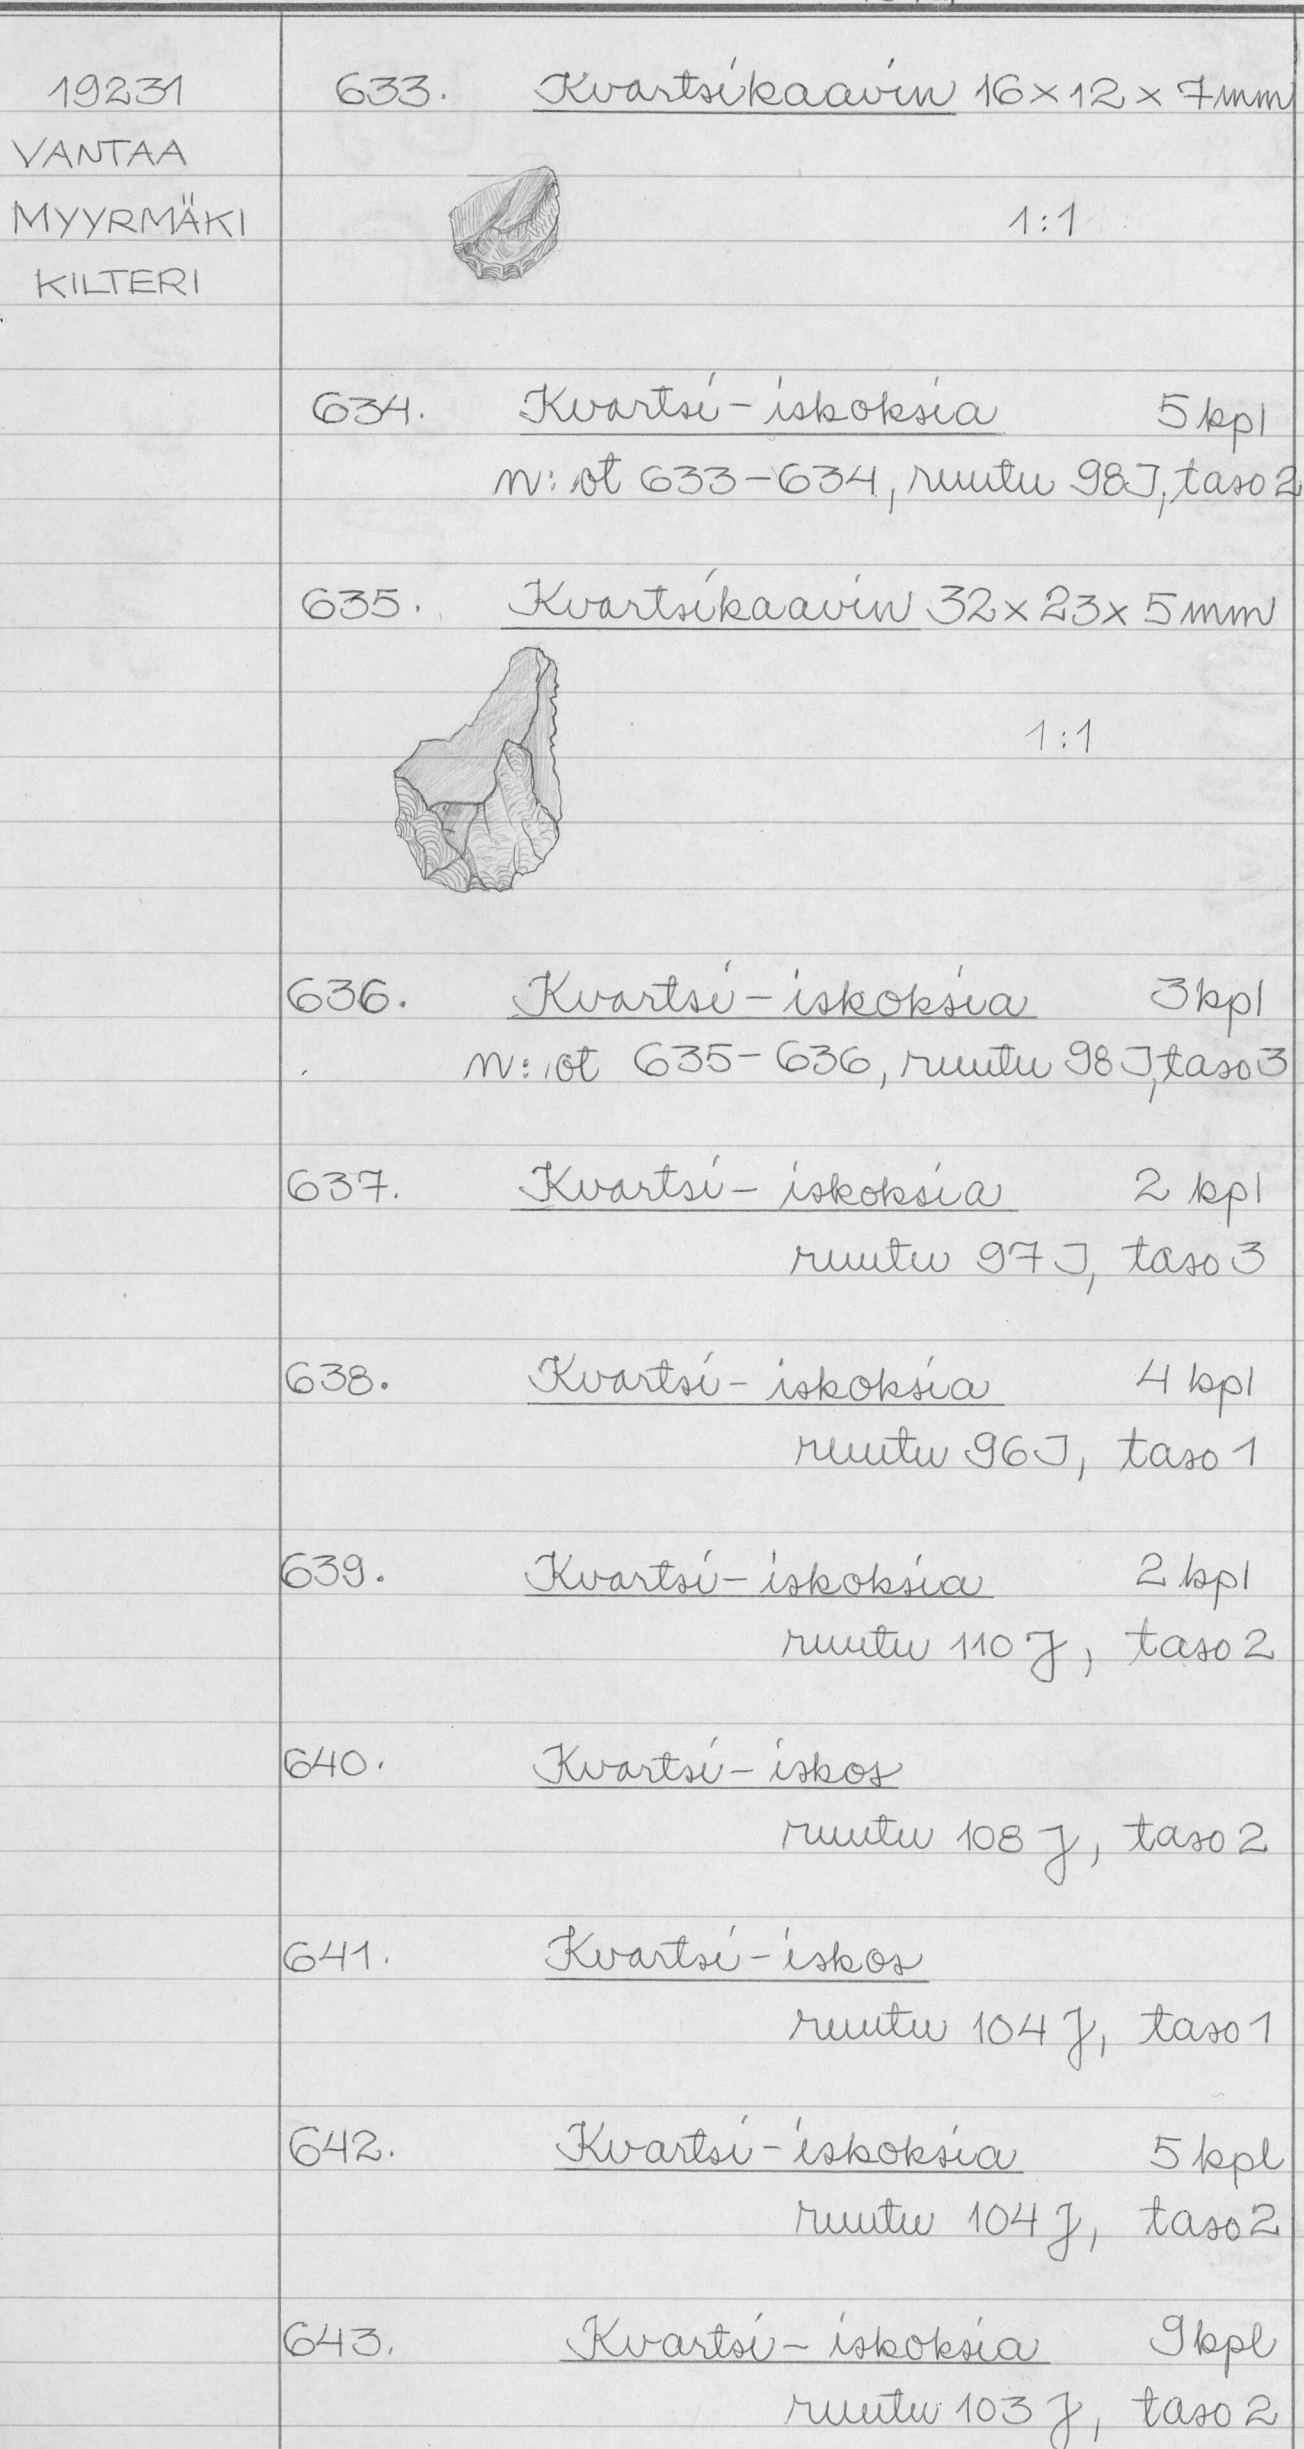 19231
VANTAA
MYYRMÄKI
KILTERI
633. Kvartsikaavin 16×12×7mm
1:1
634. Kvartsi-iskoksia 5 kpl
n:ot 633-634, ruutu 98I, taso 2
635. Kvartsikaavin 32×23×5mm
1:1
636. Kvartsi-iskoksia 3 kpl
n:ot 635-636, ruutu 98I, taso 3
637. Kvartsi-iskoksia 2 kpl
ruutu 97I, taso 3
638. Kvartsi-iskoksia 4 kpl
ruutu 96I, taso 1
639. Kvartsi-iskoksia 2 kpl
ruutu 110 J, taso 2
640. Kvartsi-iskos
ruutu 108 J, taso 2
641. Kvartsi-iskos
ruutu 104 J, taso 1
642. Kvartsi-iskoksia 5 kpl
ruutu 104 J, taso 2
643. Kvartsi-iskoksia 9 kpl
ruutu 103 J, taso 2